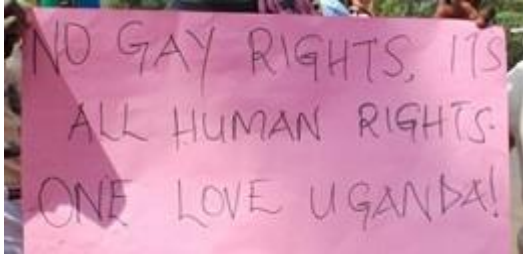 NO GAY RIGHTS, ITS
ALL HUMAN RIGHTS.
ONE LOVE UGANDA!